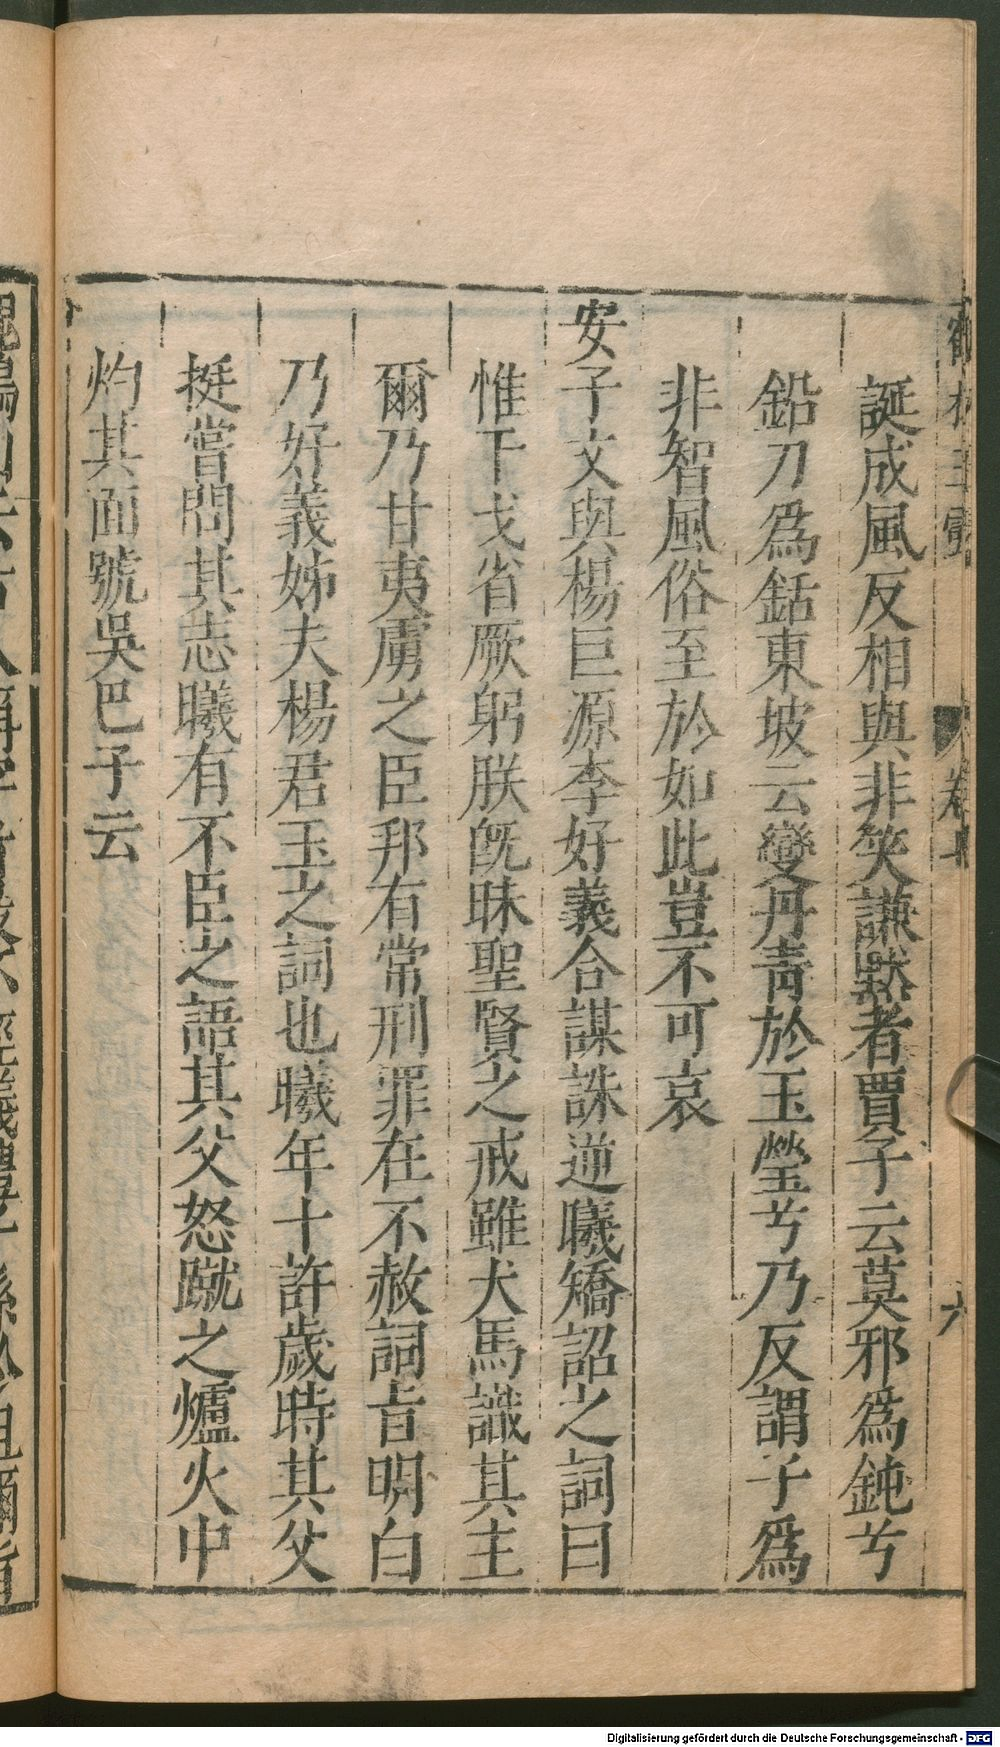 誕成風反相與非笑謙默者賈子云莫邪爲鈍兮
鉛刀爲銛東坡云變丹青於玉瑩兮乃反謂子爲
非智風俗至於如此豈不可哀
安子文與楊巨源李好義合謀誅逆曦矯詔之詞曰
惟干戈省厥躬朕旣昧聖賢之戒雖犬馬識其主
爾乃甘夷虜之臣邦有常刑罪在不赦詞旨明白
乃好義姊夫楊君玉之詞也曦年十許歲時其父
挺嘗問其志曦有不臣之語其父怒蹴之爐火中
灼其面號吳巴子云
Digitalisierung gefördert durch die Deutsche Forschungsgemeinschaft - DFG